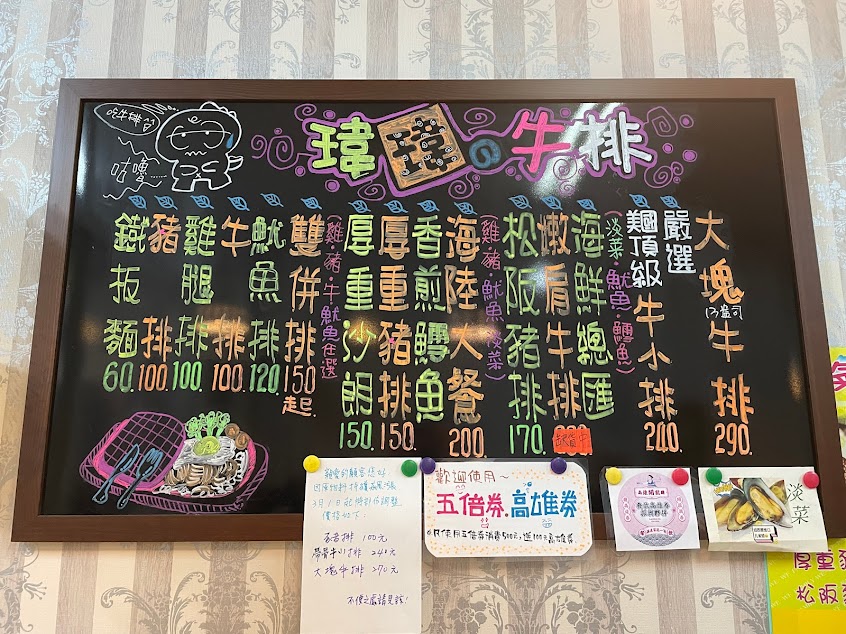 吃牛排
咕嚕
瑋瑋の牛排
鐵板麵 60.
豬排 100.
雞腿排 100.
牛排 100.
魷魚排 120
雙併排 150起.
(雞.豬.牛.魷魚任選)
厚重沙朗 150.
厚重豬排 150.
香煎鱈魚
海陸大餐 200
(雞.豬.魷魚.淡菜)
松阪豬排 170
嫩肩牛排
海鮮總匯
(淡菜.魷魚.鱈魚)
頂級牛小排 240.
嚴選
大塊牛排 290.
13盎司
親愛的顧客您好
3月1日起
價格如下:
豬排 100元
帶骨牛小排 240元
大塊牛排 290元
不便之處請見諒!
歡迎使用~
五倍券.高雄券
凡使用五倍券消費500元,送100元高雄券
淡菜
厚重豬
松阪豬